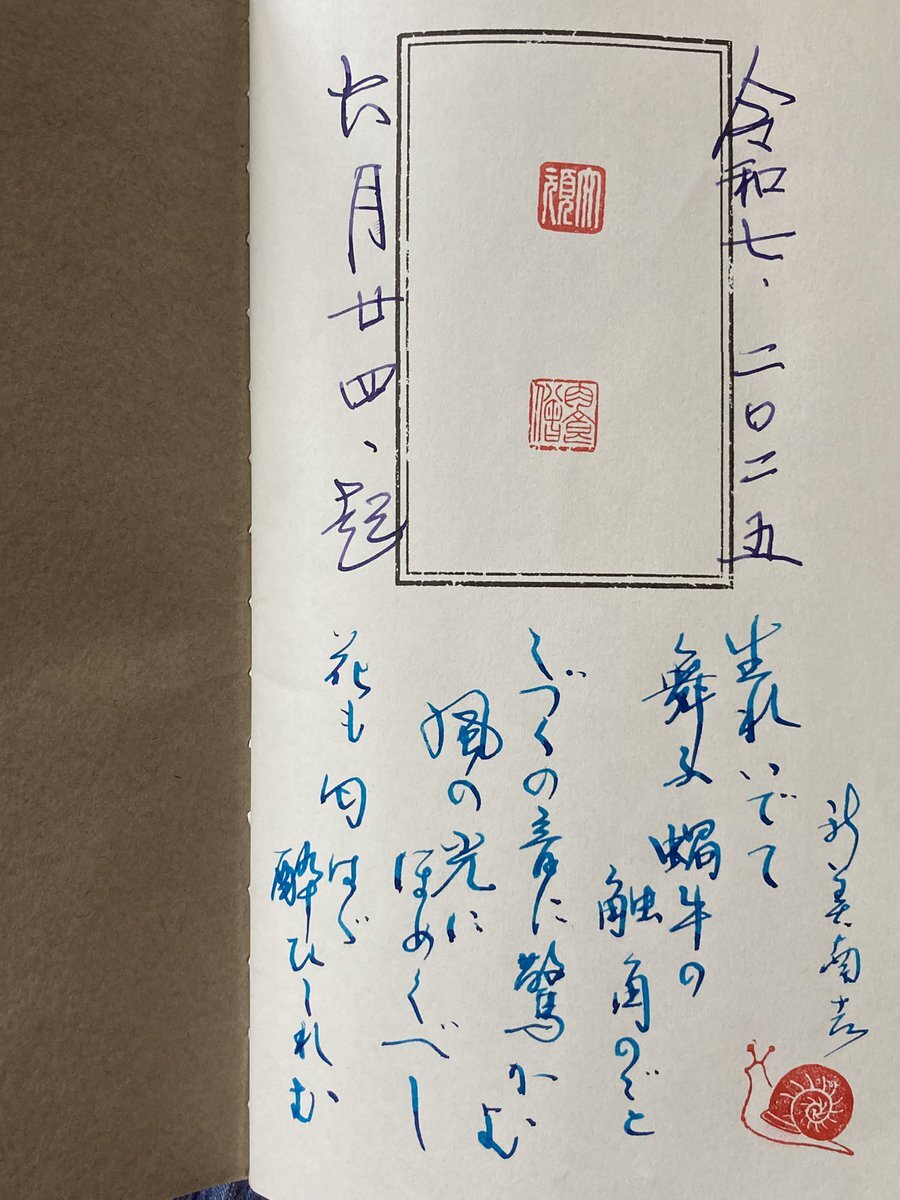 令和七、二〇二五
六月廿四、起
新美南吉
生れいでて
舞ふ蝸牛の
触角のごと
しづくの音に驚かむ
風の光に
ほめくべし
花も匂はゞ
酔ひしれむ